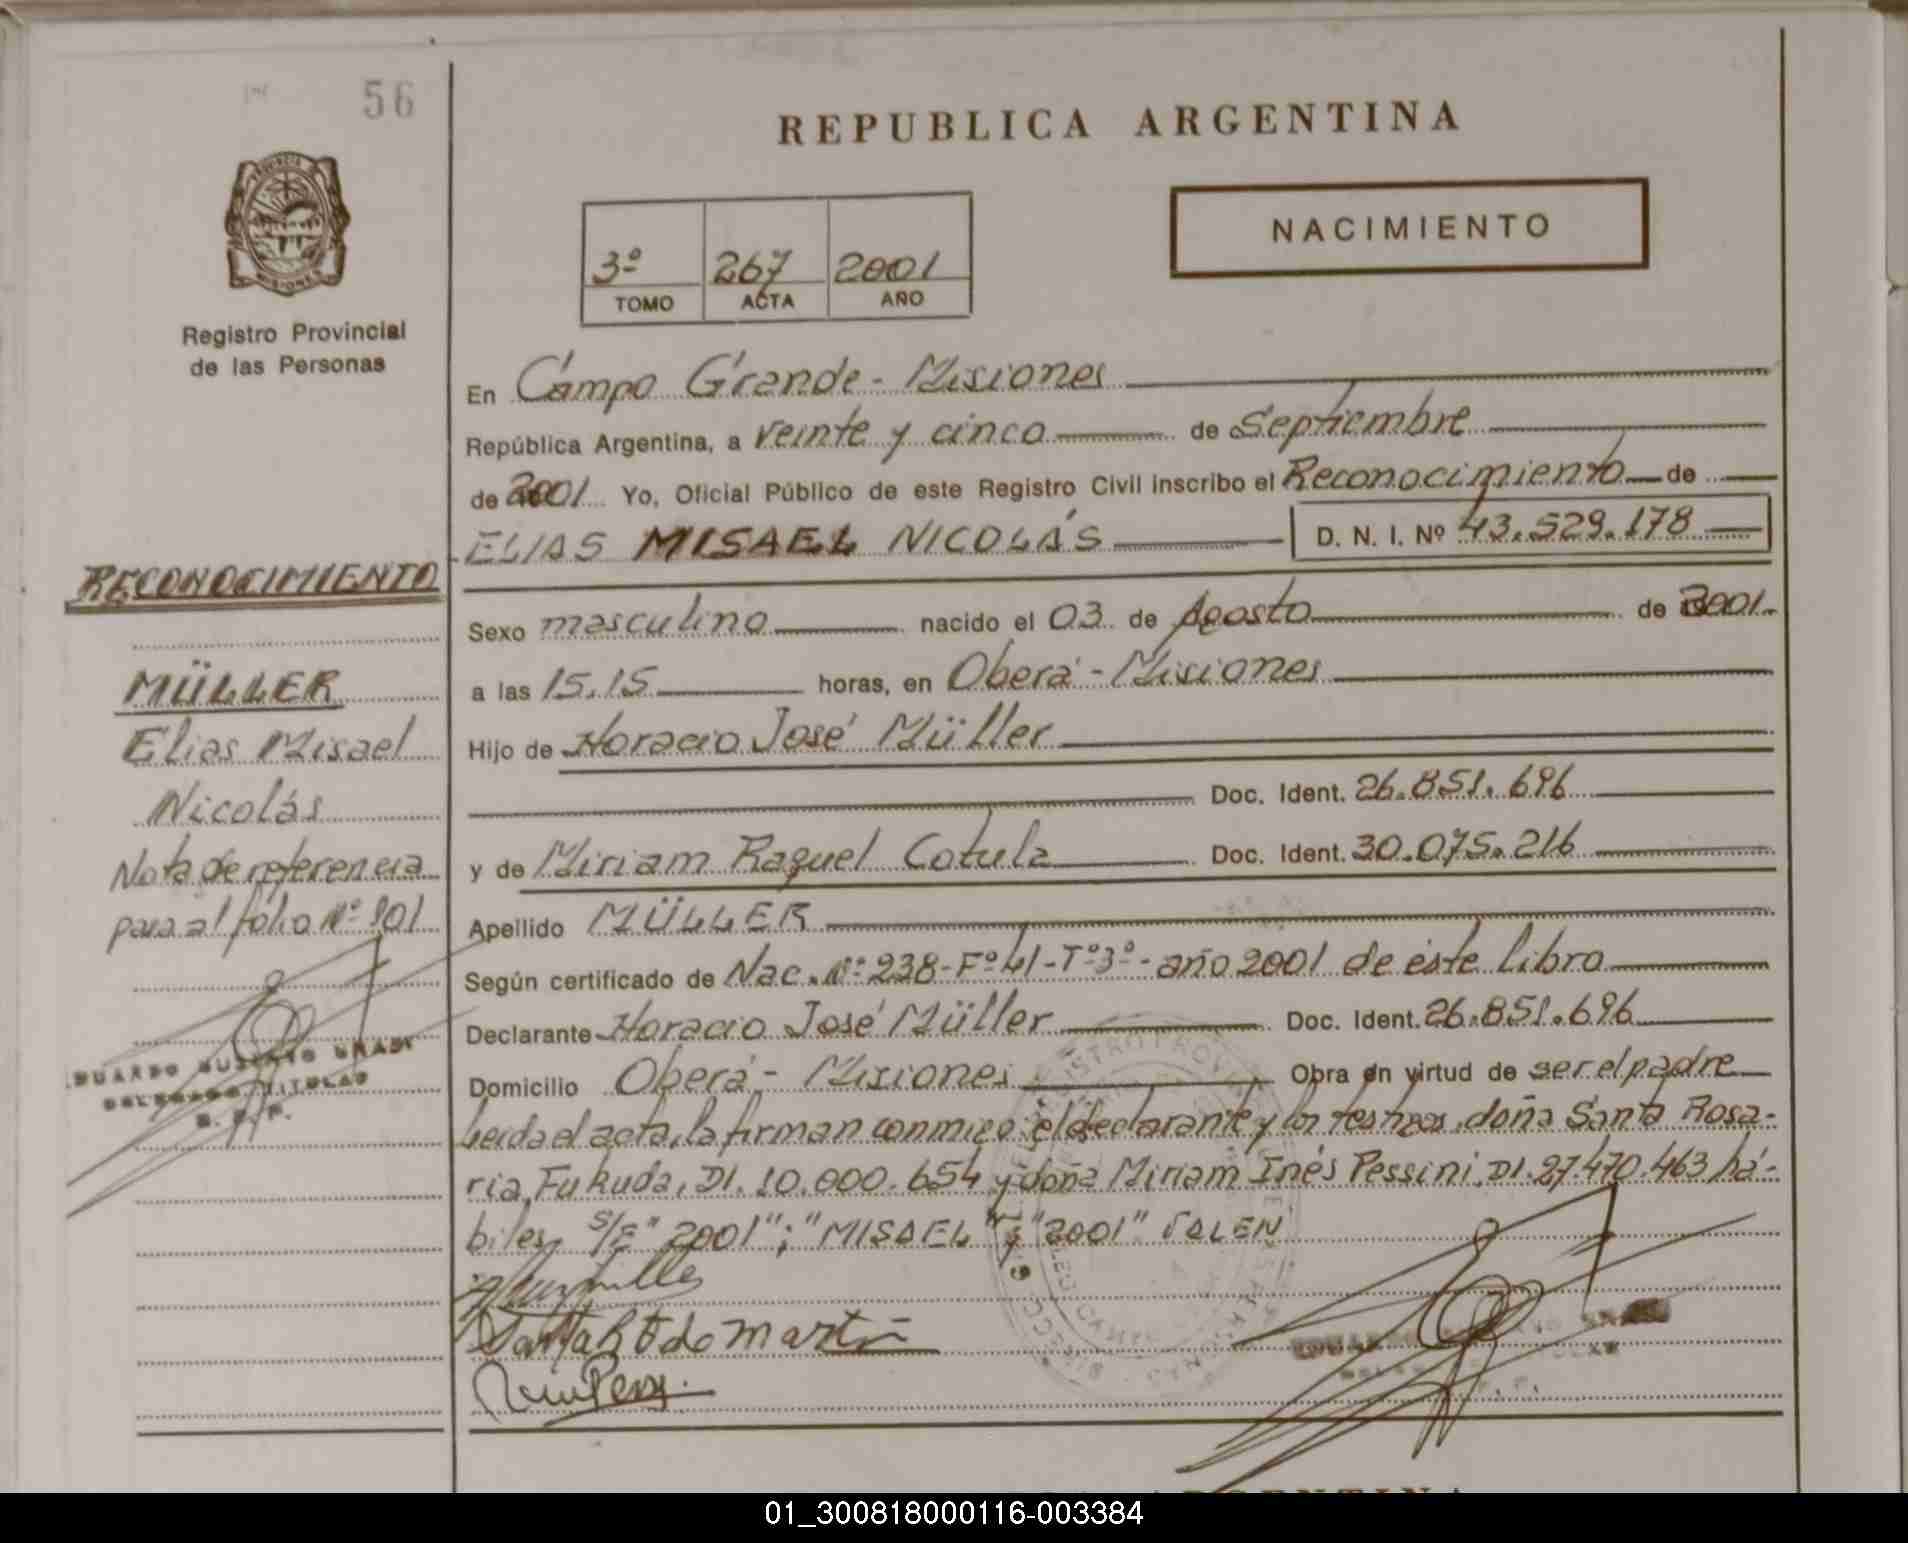 56
REPUBLICA ARGENTINA
NACIMIENTO
3º 267 2001
TOMO ACTA AÑO
Registro Provincial
de las Personas
En Campo Grande - Misiones
República Argentina, a veinte y cinco de Septiembre
de 2001 Yo, Oficial Público de este Registro Civil inscribo el Reconocimiento de
ELIAS MISAEL NICOLÁS D. N. I. Nº 43.529.178
Sexo masculino nacido el 03 de Agosto de 2001
a las 15.15 horas, en Oberá - Misiones
Hijo de Horacio José Müller
Doc. Ident. 26.851.696
y de Miriam Raquel Cotula Doc. Ident. 30.075.216
Apellido MÜLLER
Según certificado de Nac. Nº 238-Fº41-Tº3º- año 2001 de éste libro
Declarante Horacio José Müller Doc. Ident. 26.851.696
Domicilio Oberá - Misiones Obra en virtud de ser el padre
Leida el acta, la firman conmigo el declarante y los testigos, doña Santa Rosa-
ria Fukuda, DI. 10.000.654 y doña Miriam Inés Pessini, DI. 27.470.463 há-
biles S/E "2001"; "MISAEL" y "2001" VALEN
RECONOCIMIENTO
MÜLLER
Elias Misael
Nicolás
Nota de referencia
para al folio Nº 101
EDUARDO
DELEGADO TITULAR
01_300818000116-003384